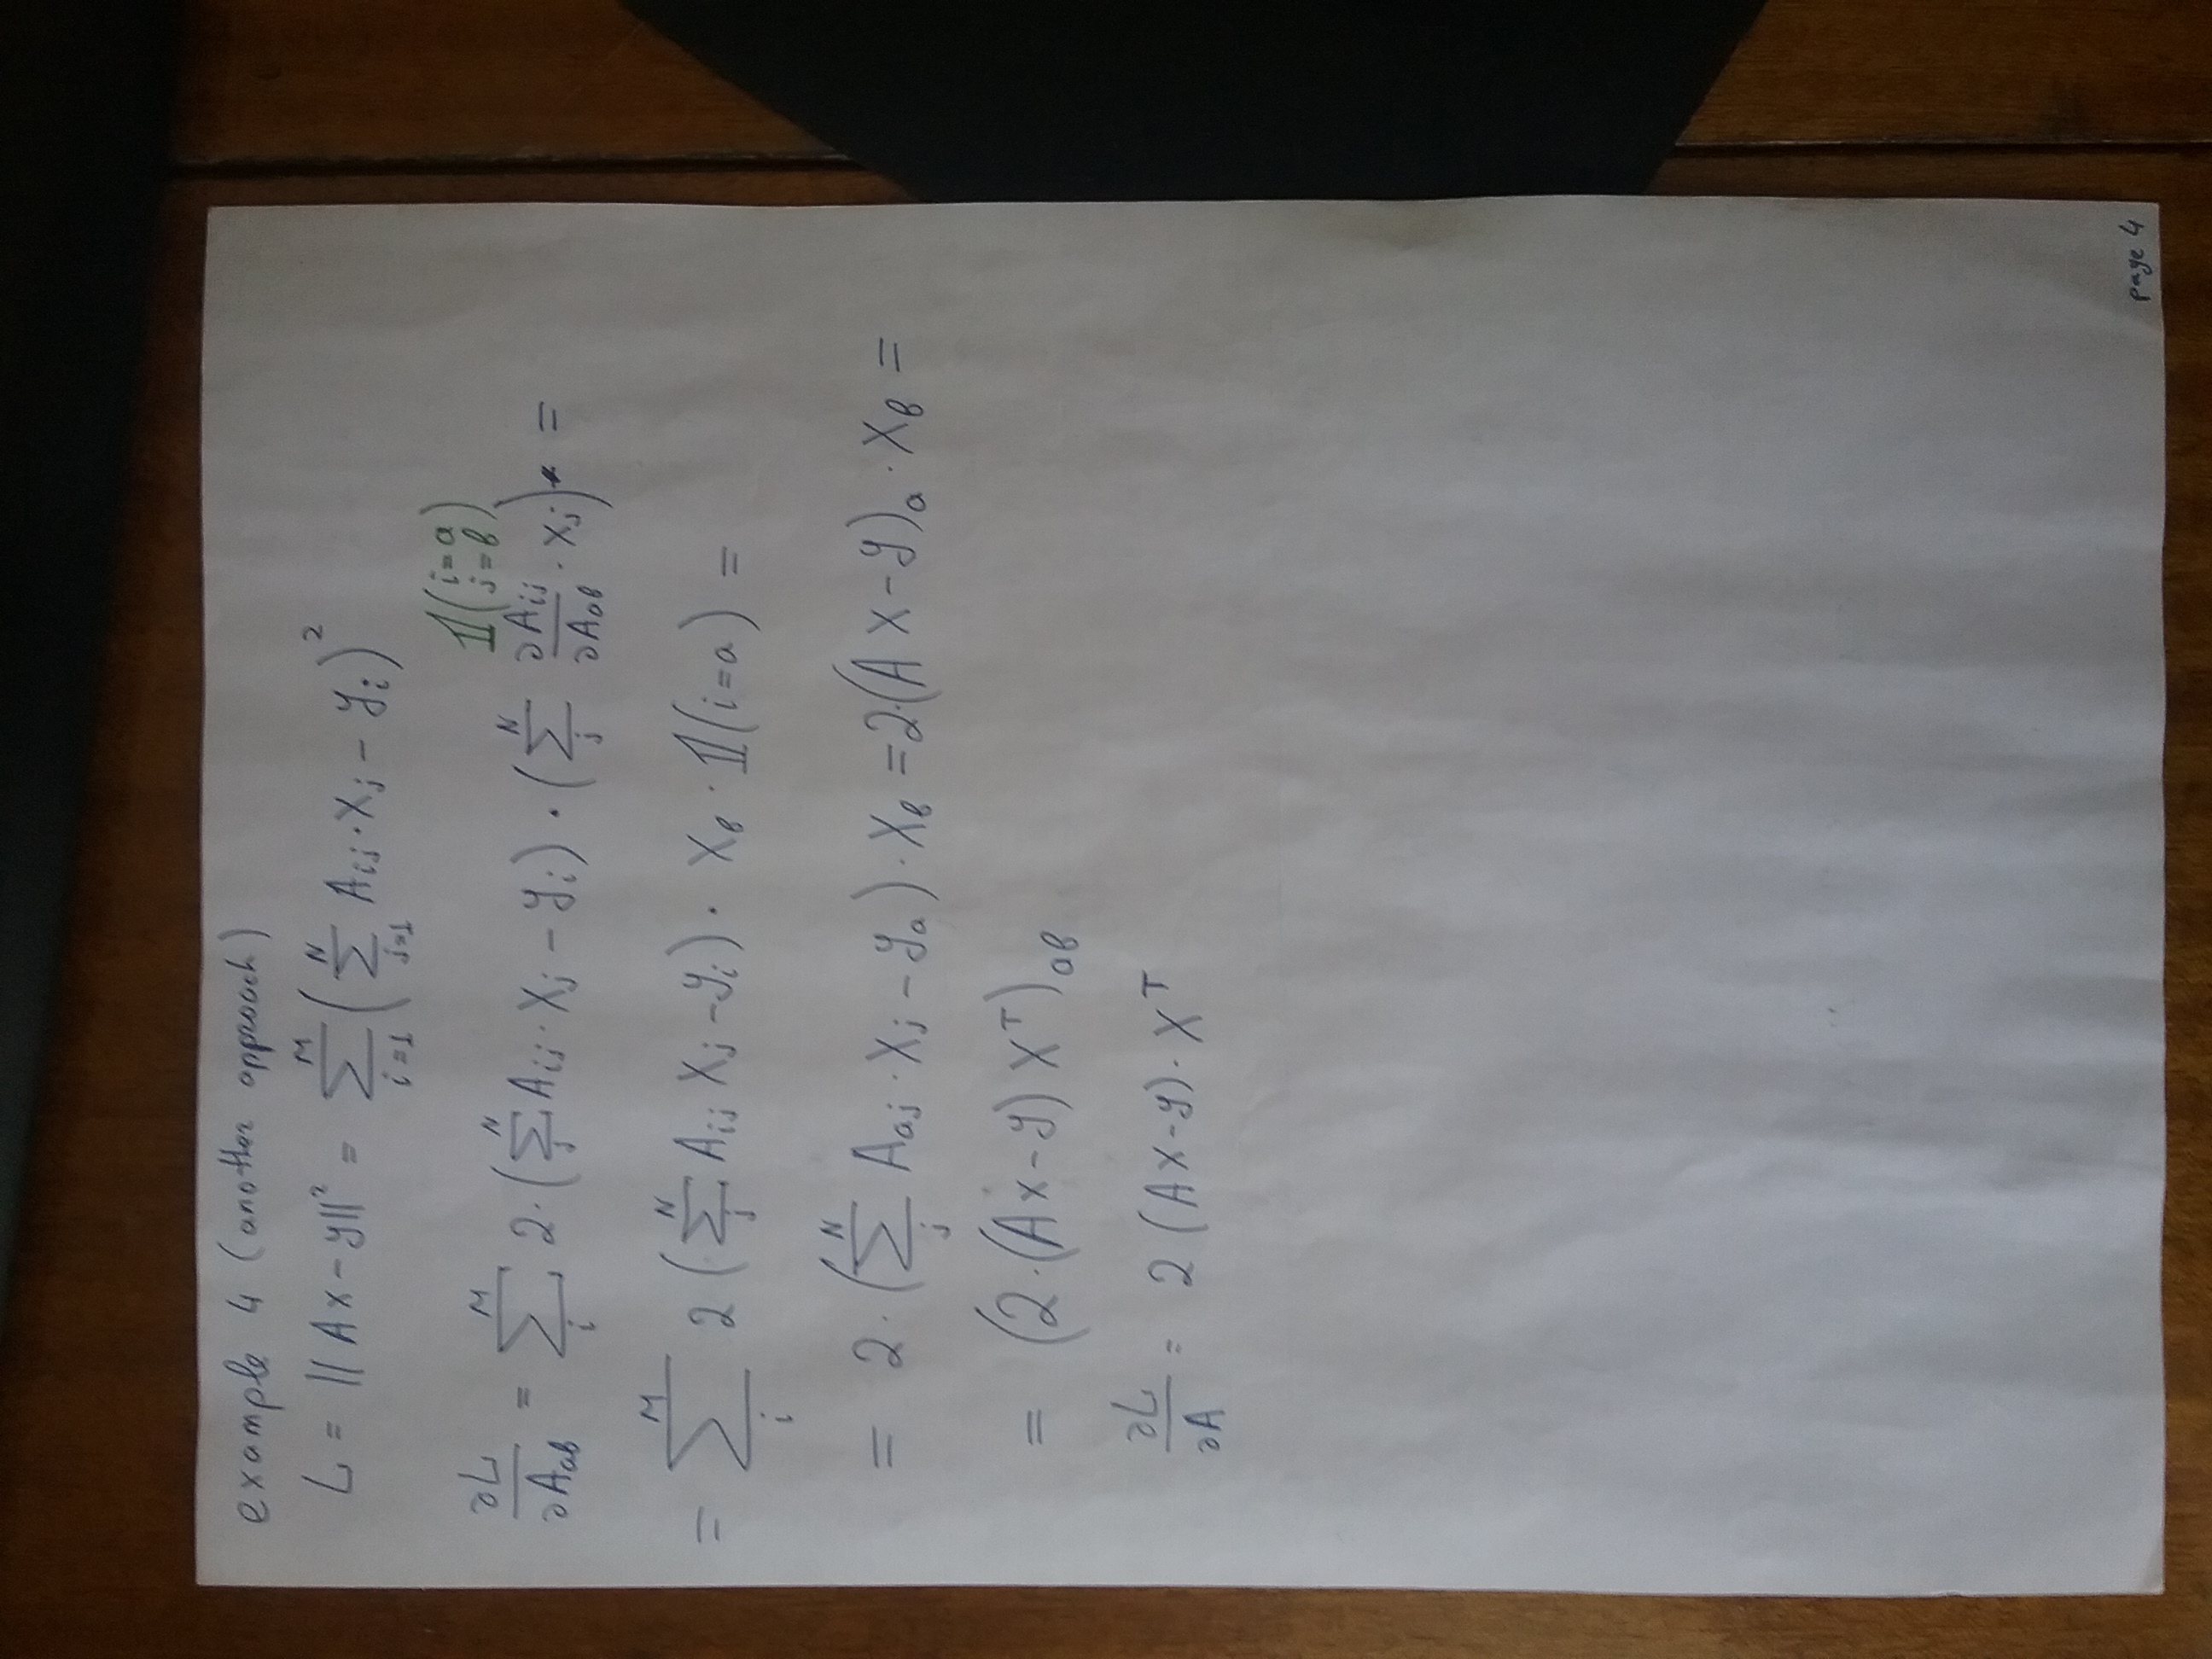 example 4 (another approach)
L = || Ax - y ||² = \sum_{i=1}^{M} ( \sum_{j=1}^{N} A_{ij} · x_j - y_i )²
𝟙(i=a j=b)
\frac{∂L}{∂A_{ab}} = \sum_{i}^{M} 2 · ( \sum_{j}^{N} A_{ij} · x_j - y_i ) · ( \sum_{j}^{N} \frac{∂A_{ij}}{∂A_{ab}} · x_j ) =
= \sum_{i}^{M} 2 ( \sum_{j}^{N} A_{ij} x_j - y_i ) · x_b · 𝟙(i=a) =
= 2 · ( \sum_{j}^{N} A_{aj} · x_j - y_a ) · x_b = 2·(Ax - y)_a · x_b =
= (2·(Ax - y) x^T)_{ab}
\frac{∂L}{∂A} = 2 (Ax - y) · x^T
page 4